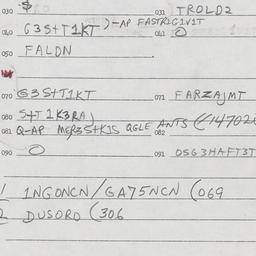 030 $ 031 TROLD2
040 G3S+T1KT )-AP FASTR1G1V1T
041 O
050 FALDN
070 G3S+T1KT 071 FARZAJMT
080 S+T1K3RA)
081 Q-AP MEP3S+K1S QGLE ANTS (147020 082
090 O 091 OSG3HAFT3T
1 1NGONCN/GA75NCN (069
2 DUSORO (306